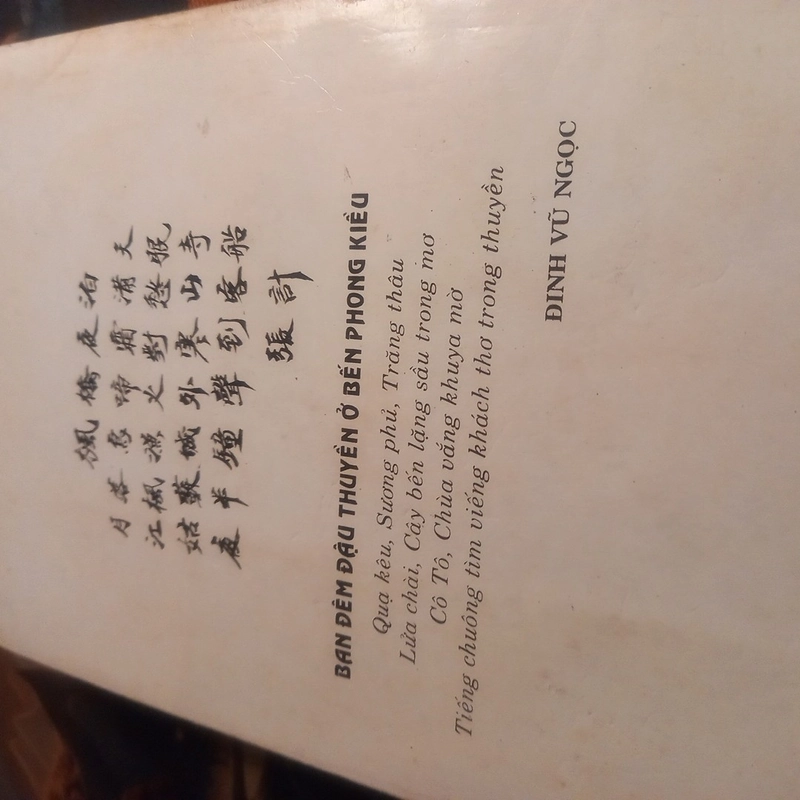 楓橋夜泊
月落烏啼霜滿天
江楓漁火對愁眠
姑蘇城外寒山寺
夜半鐘聲到客船
張計
BAN ĐÊM ĐẬU THUYỀN Ở BẾN PHONG KIỀU
Quạ kêu, Sương phủ, Trăng thâu
Lửa chài, Cây bến lặng sầu trong mơ
Cô Tô, Chùa vắng khuya mờ
Tiếng chuông tìm viếng khách thơ trong thuyền
ĐINH VŨ NGỌC